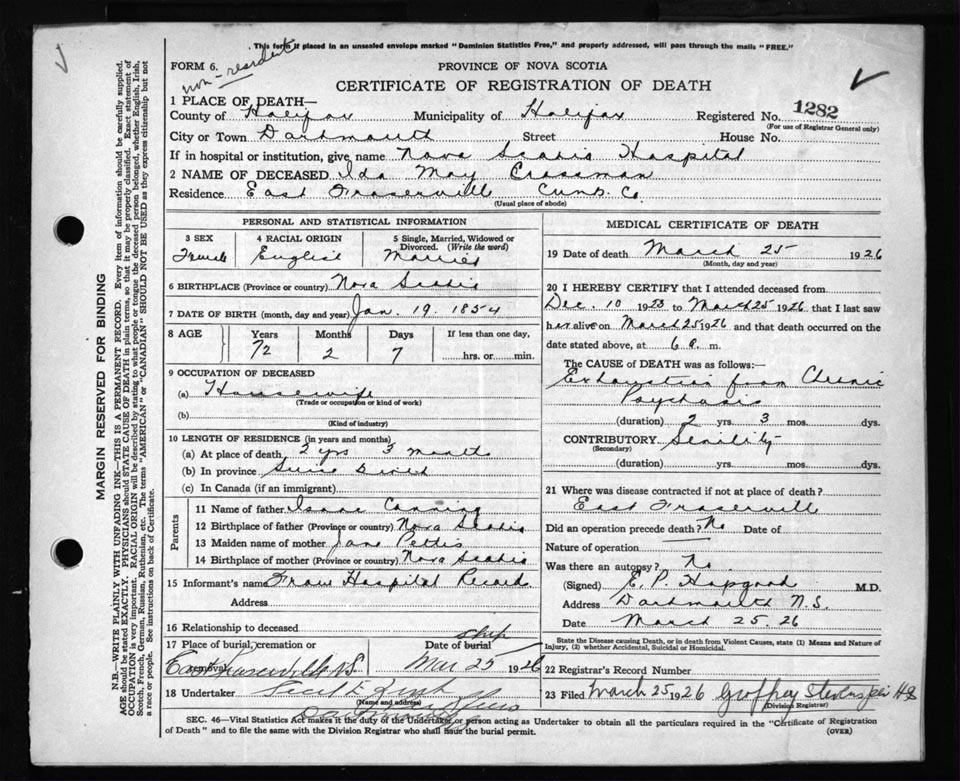 This form if placed in an unsealed envelope marked "Dominion Statistics Free," and properly addressed, will pass through the mails "FREE."
FORM 6.
non-resident
PROVINCE OF NOVA SCOTIA
CERTIFICATE OF REGISTRATION OF DEATH
1 PLACE OF DEATH—
County of Halifax Municipality of Halifax Registered No. 1282
(For use of Registrar General only)
City or Town Dartmouth Street House No.
If in hospital or institution, give name Nova Scotia Hospital
2 NAME OF DECEASED Ida May Crossman
Residence East Fraserville Cumb. Co.
(Usual place of abode)
PERSONAL AND STATISTICAL INFORMATION
3 SEX 4 RACIAL ORIGIN 5 Single, Married, Widowed or Divorced. (Write the word)
Female English Married
6 BIRTHPLACE (Province or country) Nova Scotia
7 DATE OF BIRTH (month, day and year) Jan. 19. 1854
8 AGE Years Months Days If less than one day,
72 2 7 hrs. or min.
9 OCCUPATION OF DECEASED
(a) Housewife
(Trade or occupation or kind of work)
(b)
(Kind of industry)
10 LENGTH OF RESIDENCE (in years and months)
(a) At place of death 2 yrs 3 months
(b) In province Since birth
(c) In Canada (if an immigrant)
Parents
11 Name of father Isaac Canning
12 Birthplace of father (Province or country) Nova Scotia
13 Maiden name of mother Jane Pettis
14 Birthplace of mother (Province or country) Nova Scotia
15 Informant's name From Hospital Record
Address
16 Relationship to deceased
17 Place of burial, cremation or removal Date of burial ship
East Fraserville N.S. Mar 25 1926
18 Undertaker Cecil E.
(Name and address)
MEDICAL CERTIFICATE OF DEATH
19 Date of death March 25 1926
(Month, day and year)
20 I HEREBY CERTIFY that I attended deceased from
Dec. 10 1923 to March 25 1926, that I last saw
her alive on March 25 1926 and that death occurred on
date stated above, at 6 a. m.
The CAUSE OF DEATH was as follows:—
Exhaustion from Chronic
Psychosis
(duration) 2 yrs. 3 mos. dys.
CONTRIBUTORY Senility
(Secondary)
(duration) yrs. mos. dys.
21 Where was disease contracted if not at place of death?
East Fraserville
Did an operation precede death? No Date of
Nature of operation
Was there an autopsy? No
(Signed) E. P. Hapgood M.D.
Address Dartmouth N.S.
Date March 25. 26
State the Disease causing Death, or in death from Violent Causes, state (1) Means and Nature of Injury, (2) whether Accidental, Suicidal or Homicidal.
22 Registrar's Record Number
23 Filed March 25 1926 Geoffrey
(Division Registrar)
SEC. 46—Vital Statistics Act makes it the duty of the Undertaker or person acting as Undertaker to obtain all the particulars required in the "Certificate of Registration
of Death" and to file the same with the Division Registrar who shall issue the burial permit.
(OVER)
MARGIN RESERVED FOR BINDING
N.B.—WRITE PLAINLY WITH UNFADING INK—THIS IS A PERMANENT RECORD. Every item of information should be carefully supplied.
AGE should be stated EXACTLY. PHYSICIANS should STATE CAUSE OF DEATH in plain terms, so that it may be properly classified. Exact statement of
OCCUPATION is very important. RACIAL ORIGIN will be described by stating to what people or tongue the deceased person belonged, whether English, Irish,
Scotch, French, German, Russian, Ruthenian, etc. The terms "AMERICAN" or "CANADIAN" SHOULD NOT BE USED as they express citizenship but not
a race or people. See instructions on back of Certificate.